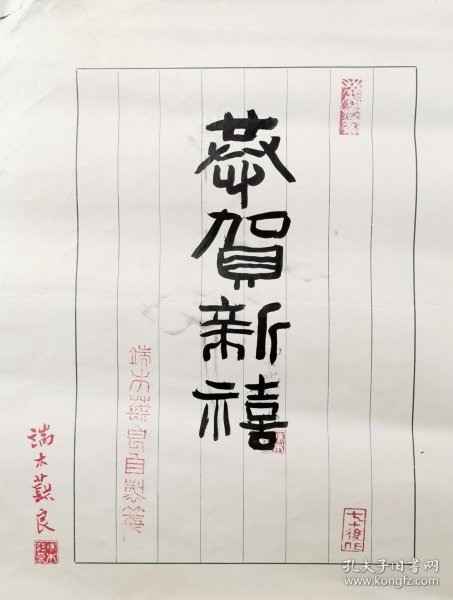 恭賀新禧
七十後作
端木蕻良自製箋
端木蕻良
孔夫子旧书网
www.kongfz.com